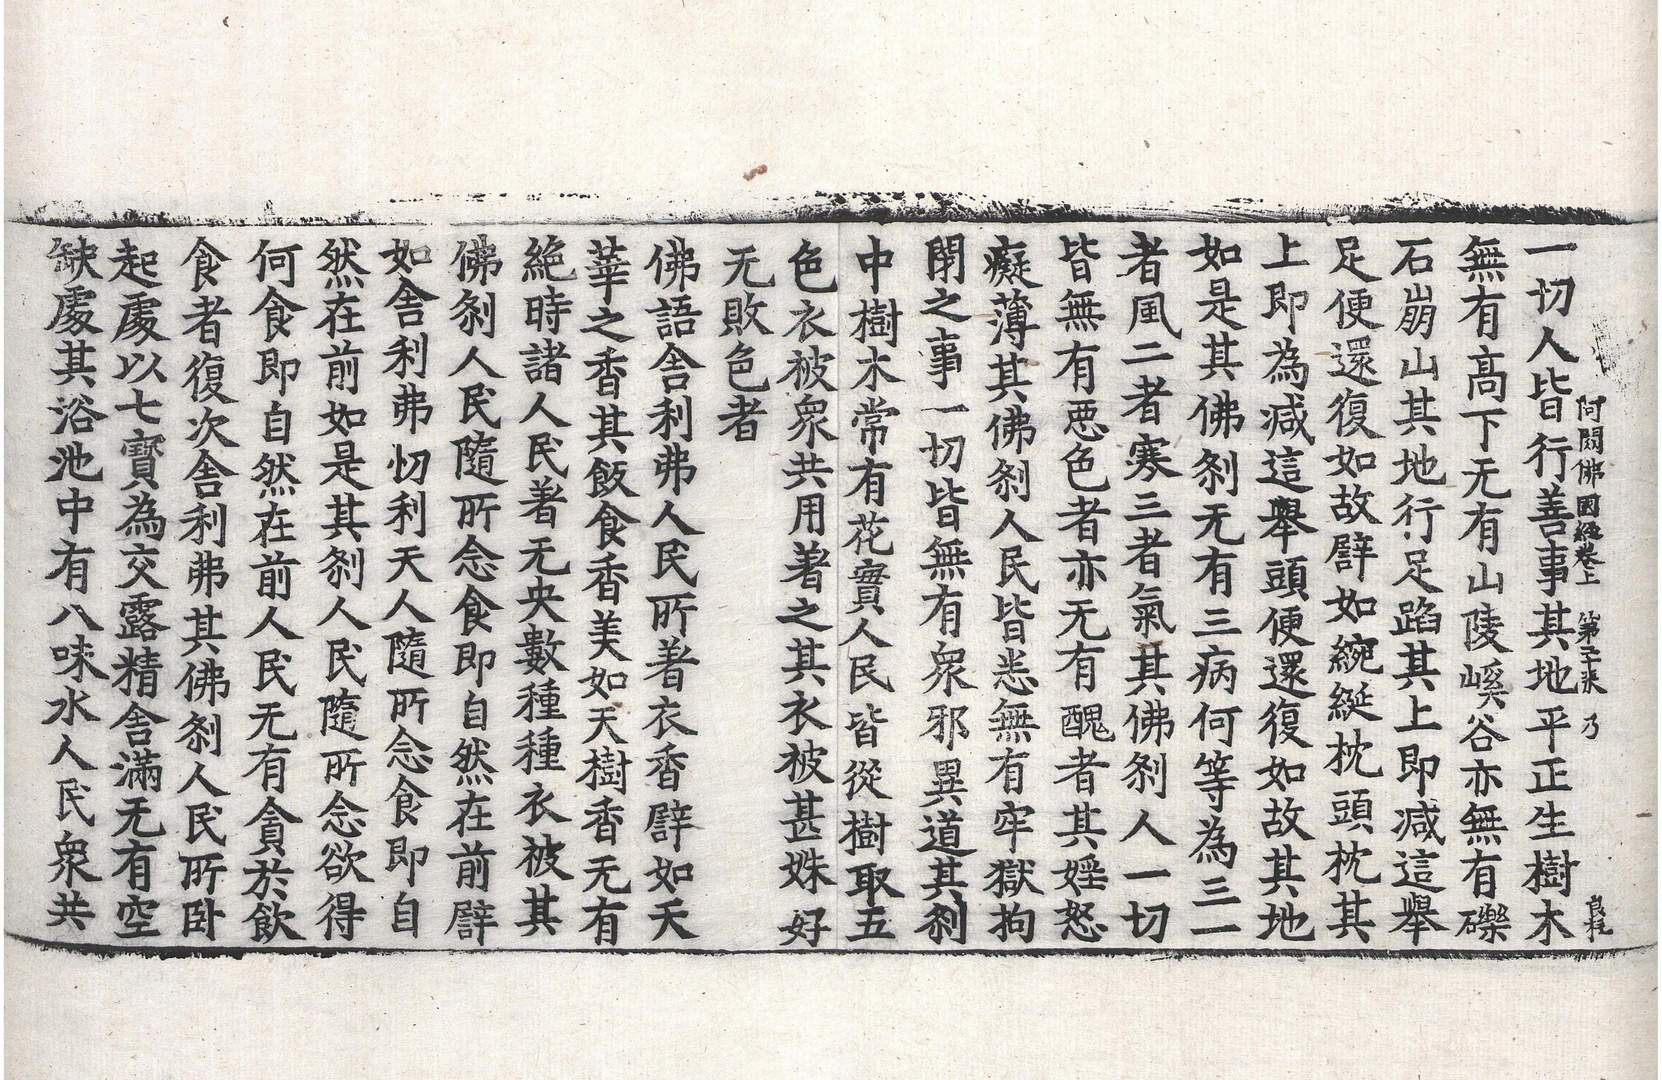 阿閦佛國經卷上 第三張 乃 良托
一切人皆行善事其地平正生樹木
無有高下无有山陵嵠谷亦無有礫
石崩山其地行足蹈其上即減這舉
足便還復如故譬如綩綖枕頭枕其
上即為減這舉頭便還復如故其地
如是其佛剎无有三病何等為三一
者風二者寒三者氣其佛剎人一切
皆無有惡色者亦无有醜者其婬怒
癡薄其佛剎人民皆悉無有牢獄拘
閉之事一切皆無有眾邪異道其剎
中樹木常有花實人民皆從樹取五
色衣被眾共用著之其衣被甚姝好
无敗色者
佛語舍利弗人民所著衣香譬如天
華之香其飯食香美如天樹香无有
絕時諸人民著无央數種種衣被其
佛剎人民隨所念食即自然在前譬
如舍利弗忉利天人隨所念食即自
然在前如是其剎人民隨所念欲得
何食即自然在前人民无有貪於飲
食者復次舍利弗其佛剎人民所臥
起處以七寶為交露精舍滿无有空
缺處其浴池中有八味水人民眾共